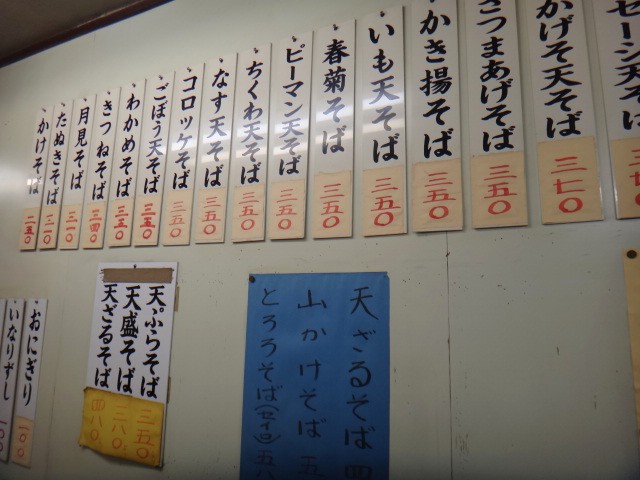 かけそば 二五〇
たぬきそば 三一〇
月見そば 三一〇
きつねそば 三四〇
わかめそば 三五〇
ごぼう天そば 三五〇
コロッケそば 三五〇
なす天そば 三五〇
ちくわ天そば 三五〇
ピーマン天そば 三五〇
春菊そば 三五〇
いも天そば 三五〇
かき揚そば 三五〇
さつまあげそば 三五〇
かげそ天そば 三七〇
セージ天そ
いなりずし 一〇〇
おにぎり 一〇〇
天ぷらそば 三五〇
天盛そば
天ざるそば 四八〇
天ざるそば 四
山かけそば 五
とろろそば